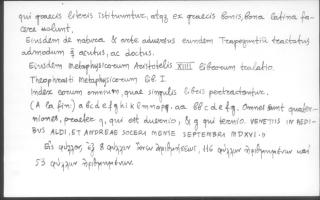 qui graecis literis istituuntur, atqz ex graecis bonis, bona latina fa-
cere volunt.
Eiusdem de natura & arte adversus eundem Trapezuntiū tractatus
admodum q̃ acutus, ac doctus.
Eiusdem Metaphysicorum Aristotelis XIIII librorum tralatio.
Theophrasti Metaphysicorum lib. I.
Index eorum omnium, quae singulis libris pertractantur.
(A la fin:) a b c d e f g h i k l m n o p q. aa bb c d e f g. Omnes sunt quater-
niones, praeter q, qui est duernio, & g qui ternio. VENETIIS IN AEDI-
BVS ALDI, ET ANDREAE SOCERI MENSE SEPTEMBRI MDXVI.
Εἰς φύλλον, ἐξ 8 φύλλων ἄνευ ἀριθμήσεως, 116 φύλλων ἠριθμημένων καὶ
53 φύλλων ἠριθμημένων.